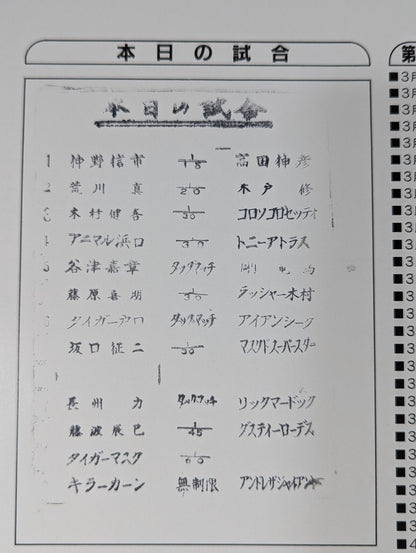 本日の試合
第
本日の試合
1 仲野信市 1/15 高田伸彦
2 荒川真 1/20 木戸修
3 木村健吾 1/30 コロソコロセッティ
4 アニマル浜口 1/30 トニーアトラス
5 谷津嘉章 タッグマッチ
藤原喜明 1/30 ラッシャー木村
タイガー タッグマッチ アイアンシーク
坂口征二 1/30 マスクドスーパースター
長州力 タッグマッチ リックマードック
藤波辰巳 1/45 ダスティーローデス
タイガーマスク
キラーカーン 無制限 アンドレザジャイアント
■3月
■3月
■3月
■3月
■3月
■3月
■3月
■3
■3
■3
■3
■3
■3
■3
■3
■3
■3
■3
■3
■3
■3
■3
■3
■3
■3
■3
■3
■3
■4